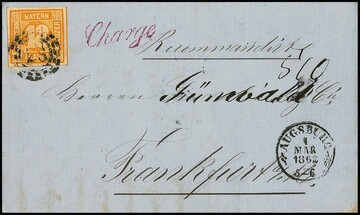 BAYERN
18
Charge
Recommandirt
569
Herren Grünwald & Co
Frankfurt a/
AUGSBURG
1
MAR
1862
5-6